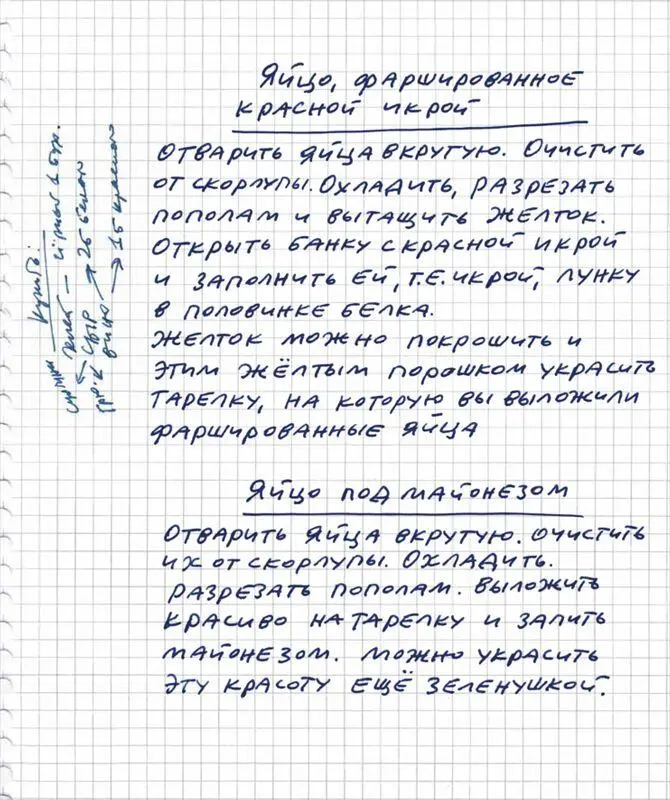 Яйцо, фаршированное
красной икрой
Отварить яйца вкрутую. Очистить
от скорлупы. Охладить, разрезать
пополам и вытащить желток.
Открыть банку с красной икрой
и заполнить ей, т.е. икрой, лунку
в половинке белка.
Желток можно покрошить и
этим жёлтым порошком украсить
тарелку, на которую вы выложили
фаршированные яйца
Яйцо под майонезом
Отварить яйца вкрутую. Очистить
их от скорлупы. Охладить.
Разрезать пополам. Выложить
красиво на тарелку и залить
майонезом. Можно украсить
эту красоту ещё зеленушкой.
Купить:
хлеб
сыр
вино → 2б белого
→ 1б красного